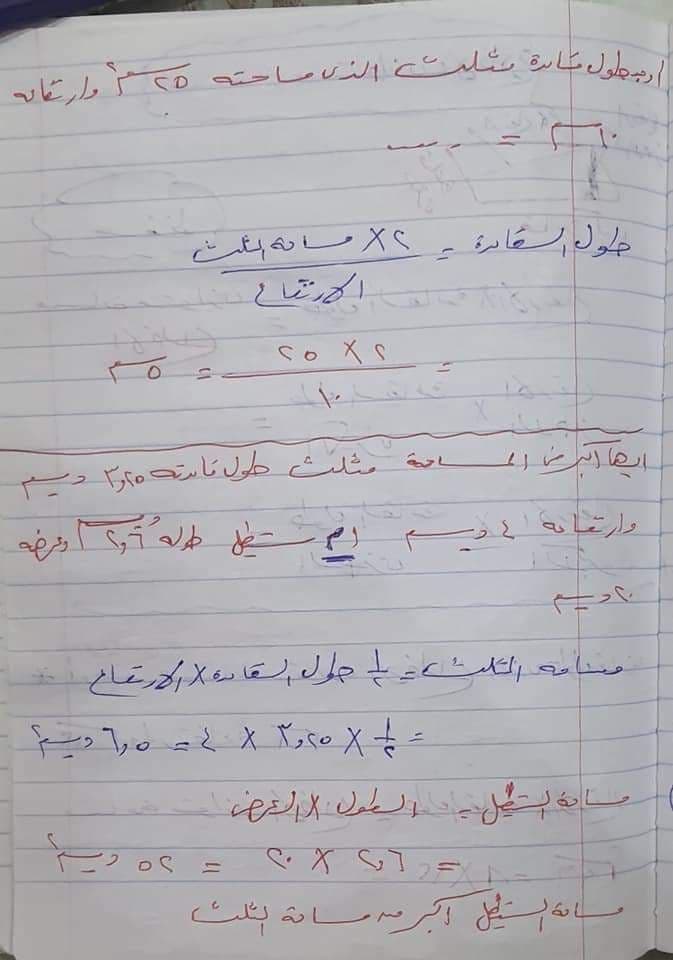 اوجد طول قاعدة مثلث الذى مساحته ٢٥ سم٢ وارتفاعه
١٠ سم = ...
طول القاعدة = ٢ × مساحة المثلث
الارتفاع
= ٢ × ٢٥ = ٥ سم
١٠
ايهما أكبر فى المساحة مثلث طول قاعدته ٣,٢٥ ديسم
وارتفاعه ٤ ديسم أم مستطيل طوله ٢,٦ وعرضه
٢٠ ديسم
مساحة المثلث = ١/٢ طول القاعدة × الارتفاع
= ١/٢ × ٣,٢٥ × ٤ = ٦,٥ ديسم٢
مساحة المستطيل = الطول × العرض
= ٢,٦ × ٢٠ = ٥٢ ديسم٢
مساحة المستطيل أكبر من مساحة المثلث